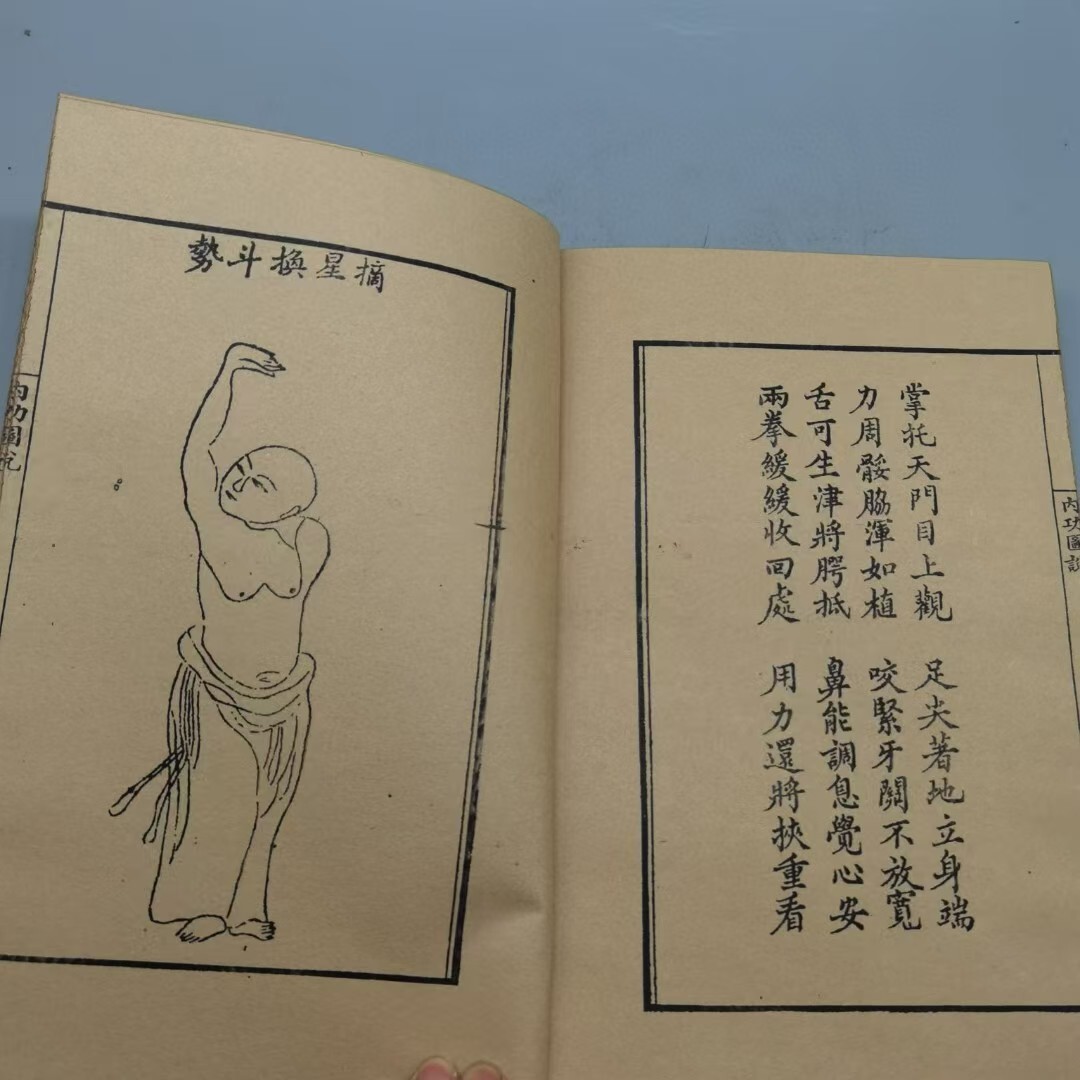 內功圖說
掌托天門目上觀 足尖著地立身端
力周骽脇渾如植 咬緊牙關不放寬
舌可生津將腭抵 鼻能調息覺心安
兩拳緩緩收回處 用力還將挾重看
摘星換斗勢
內功圖說